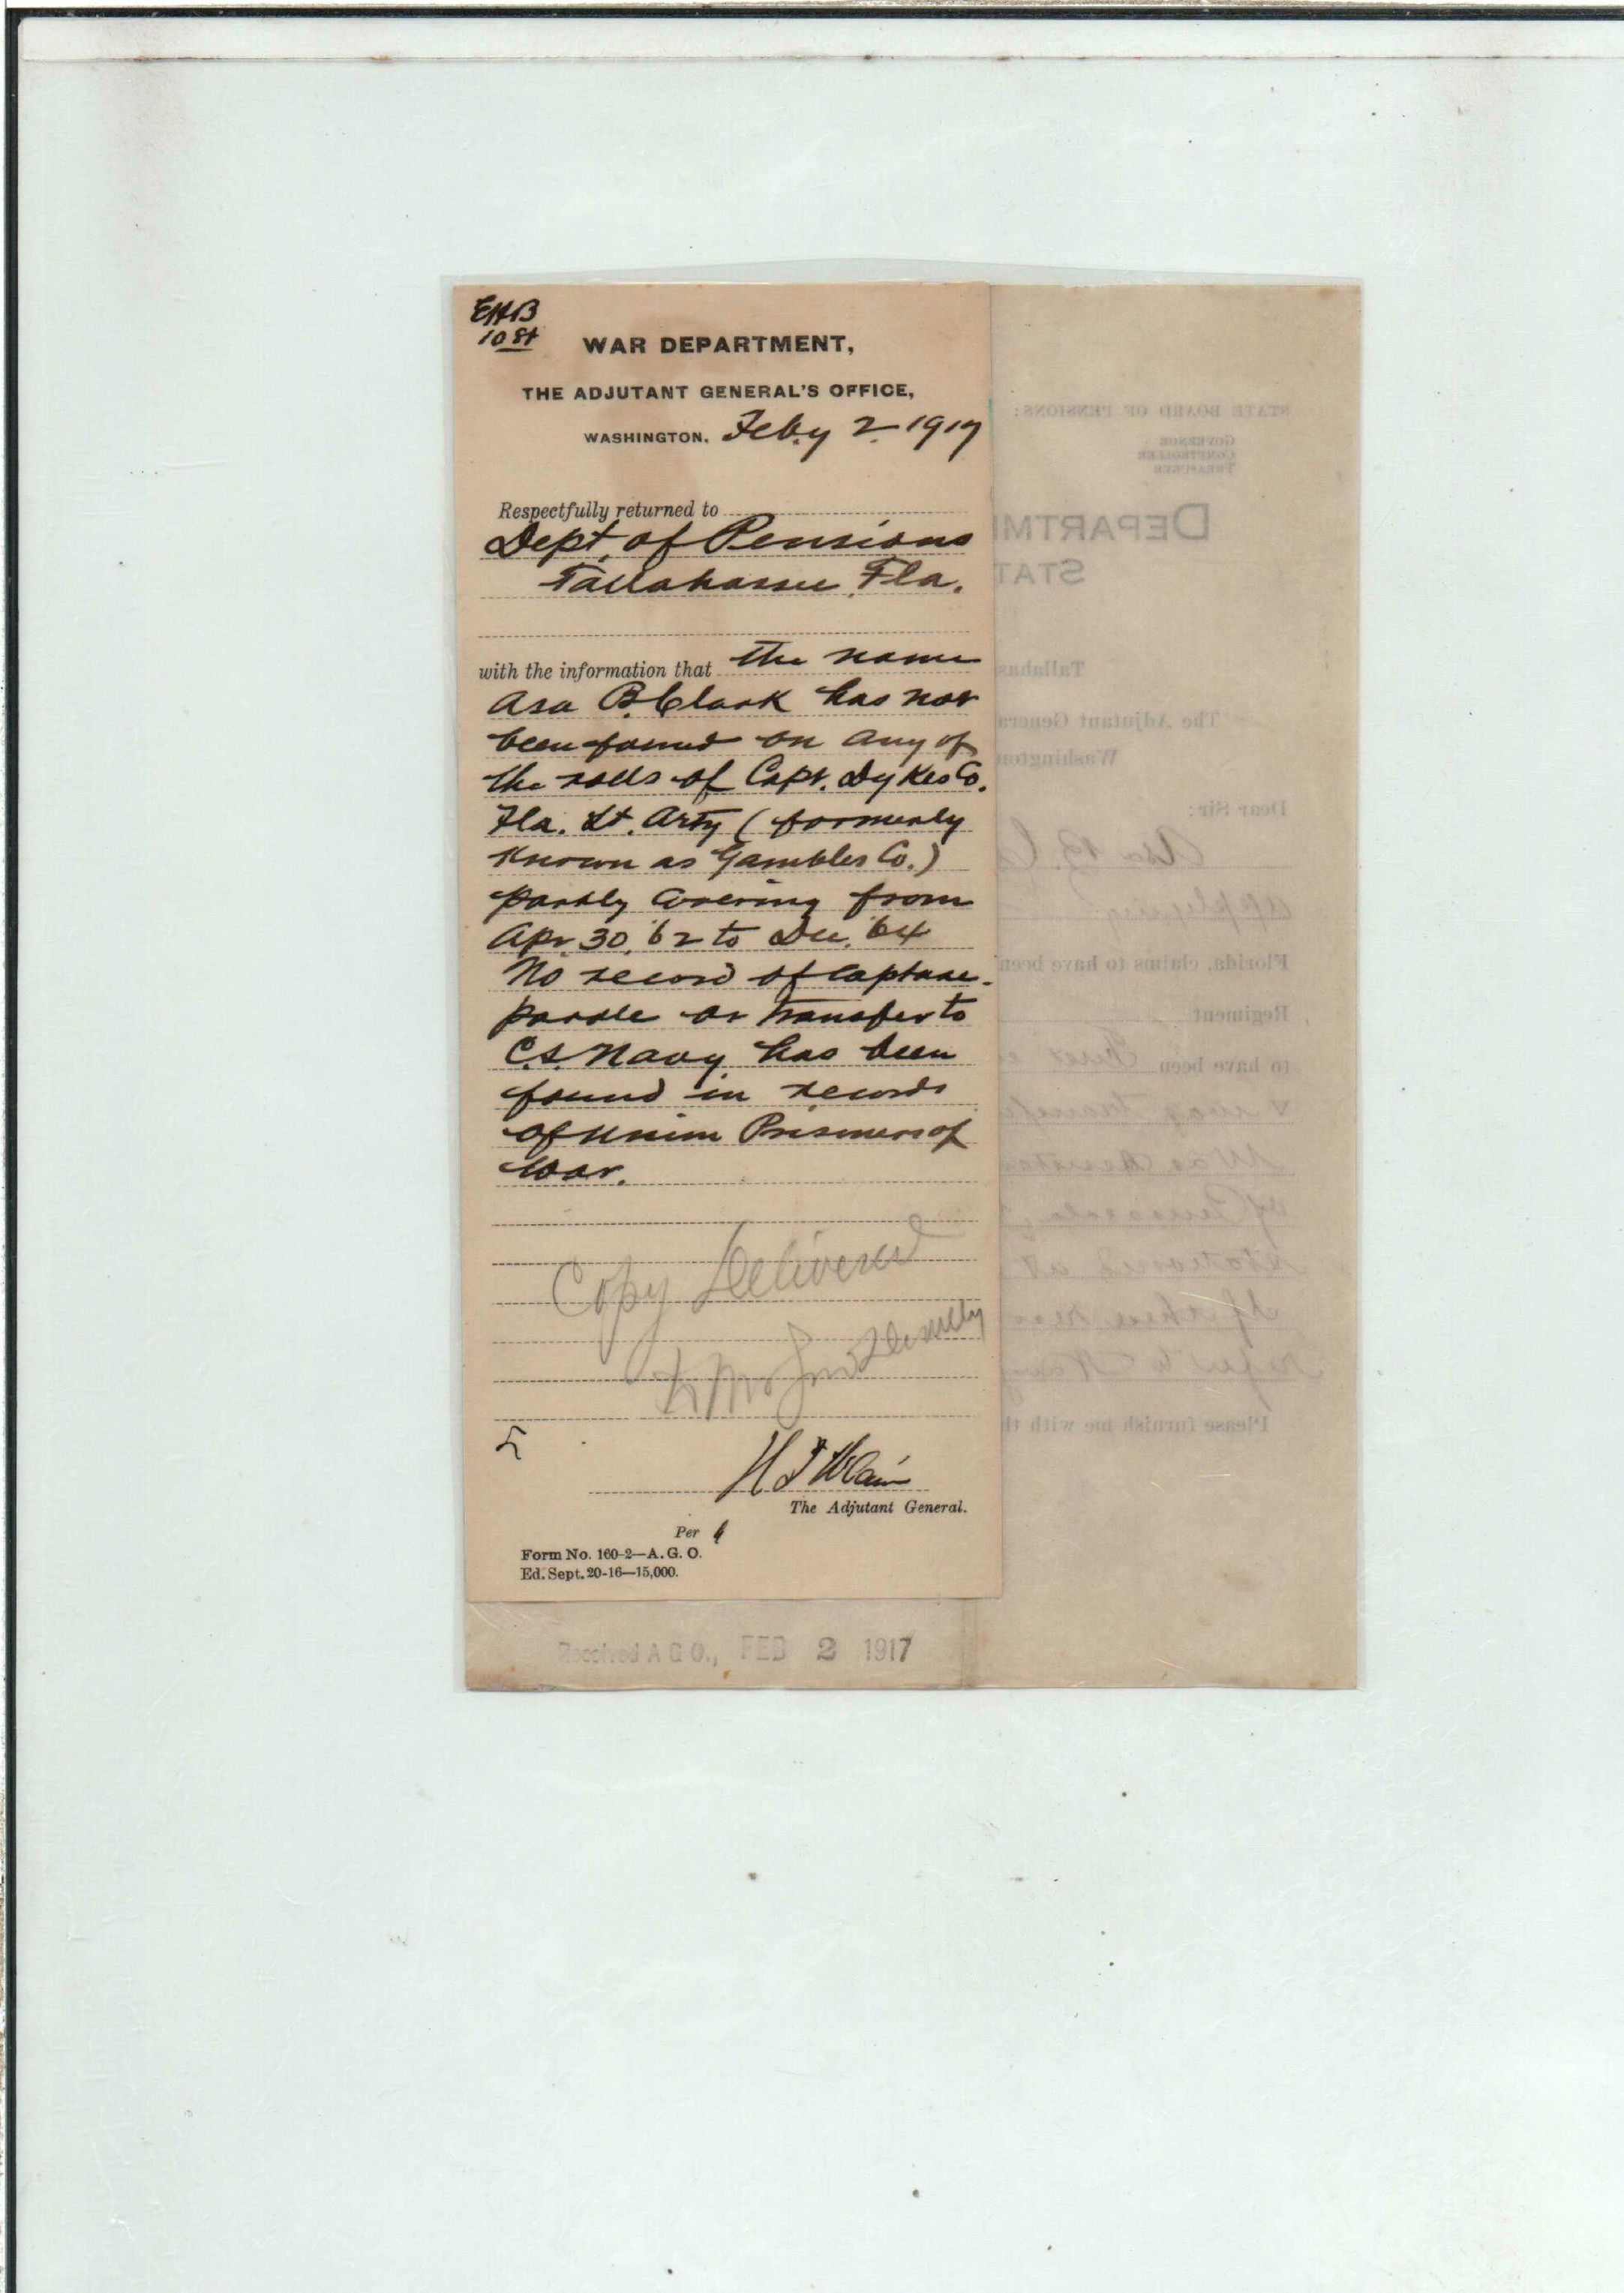 EHB
10 St
WAR DEPARTMENT,
THE ADJUTANT GENERAL'S OFFICE,
WASHINGTON, Feby 2 1917
Respectfully returned to
Dept. of Pensions
Tallahassee, Fla.
with the information that the name
Asa B. Clark has not
been found on any of
the rolls of Capt. Dykes Co.
Fla. Lt. Arty (formerly
known as Gambles Co.)
partly covering from
Apr. 30, '62 to Dec. '64
No record of capture
parole or transfer to
C.S. Navy has been
found in records
of Union Prisoners of
War.
Copy Delivered
to
The Adjutant General.
Per
Form No. 160-2—A. G. O.
Ed. Sept. 20-16—15,000.
Received A G O., FEB 2 1917
STATE BOARD OF PENSIONS:
GOVERNOR
COMPTROLLER
TREASURER
DEPARTM
STAT
Tallahas
The Adjutant Genera
Washington
Dear Sir:
Asa B. C
applying
Florida, claims to have been
Regiment
to have been
Please furnish me with th